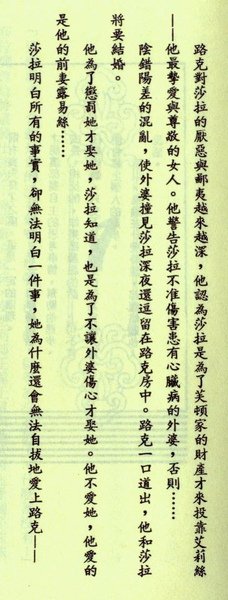 路克對莎拉的厭惡與鄙夷越來越深，他認為莎拉是為了芙頓家的財產才來投靠艾莉絲
——他最摯愛與尊敬的女人。他警告莎拉不准傷害患有心臟病的外婆，否則……
陰錯陽差的混亂，使外婆撞見莎拉深夜還逗留在路克房中。路克一口道出，他和莎拉
將要結婚。
他為了懲罰她才娶她，莎拉知道，也是為了不讓外婆傷心才娶她。他不愛她，他愛的
是他的前妻露易絲……
莎拉明白所有的事實，卻無法明白一件事，她為什麼還會無法自拔地愛上路克——